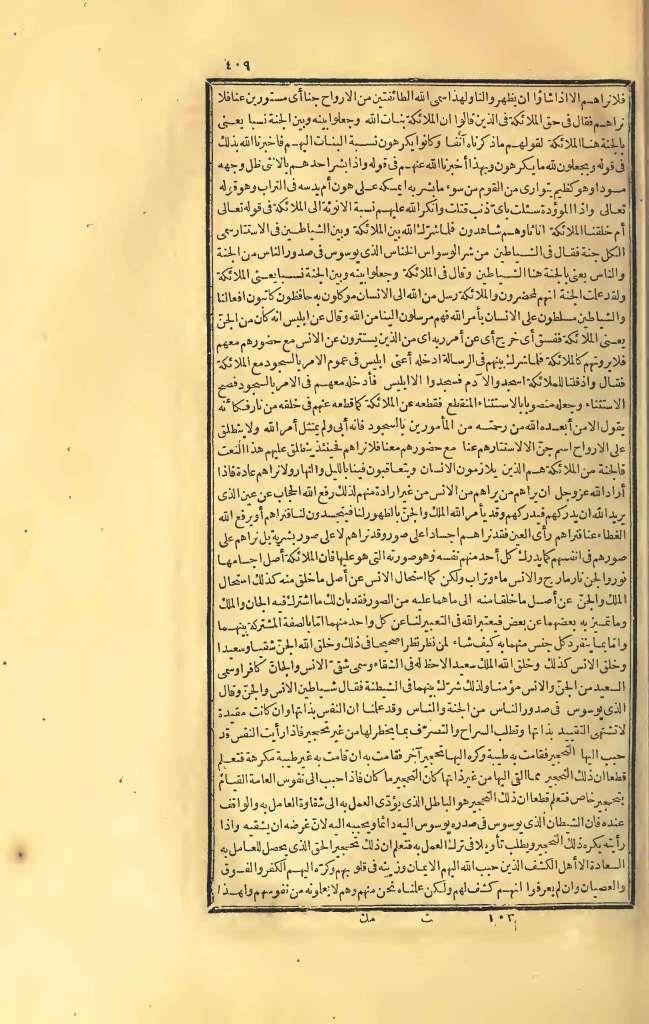 ٤٠٩
فلا نراهم الا اذا شاؤا ان يظهروا لنا ولهذا سمى الله الطائفتين من الارواح جنا أى مستورين عنا فلا
نراهم فقال فى حق الملائكة فى الذين قالوا ان الملائكة بنات الله وجعلوا بينه وبين الجنة نسبا يعنى
بالجنة هنا الملائكة لقولهم ماذكرناه آنفا وكانوا يكرهون نسبة البنات اليهم فاخبرنا الله بذلك
فى قوله ويجعلون لله ما يكرهون وبهذا أخبرنا الله عنهم فى قوله واذا بشر احدهم بالانثى ظل وجهه
مسودا وهو كظيم يتوارى من القوم من سوء ما بشر به ايمسكه على هون أم يدسه فى التراب وهو قوله
تعالى واذا الموؤدة سئلت بأى ذنب قتلت وانكر الله عليهم نسبة الانوثة الى الملائكة فى قوله تعالى
أم خلقنا الملائكة اناثا وهم شاهدون فلما شرك الله بين الملائكة وبين الشياطين فى الاستتار سمى
الكل جنة فقال فى الشياطين من شر الوسواس الخناس الذى يوسوس فى صدور الناس من الجنة
والناس يعنى بالجنة هنا الشياطين وقال فى الملائكة وجعلوا بينه وبين الجنة نسبا يعنى الملائكة
ولقد علمت الجنة انهم لمحضرون والملائكة رسل من الله الى الانسان موكلون به حافظون كاتبون افعالنا
والشياطين مسلطون على الانسان بأمر الله فهم مرسلون الينا من الله وقال عن ابليس انه كان من الجنّ
يعنى الملائكة ففسق أى خرج أى عن أمر ربه اى من الذين يستترون عن الانس مع حضورهم معهم
فلا يرونهم كالملائكة فلما شرك بينهم فى الرسالة ادخله أعنى ابليس فى عموم الامر بالسجود مع الملائكة
فقال واذ قلنا للملائكة اسجدوا لآدم فسجدوا الا ابليس فأدخله معهم فى الامر بالسجود فصح
الاستثناء وجعله منصوبا بالاستثناء المنقطع فقطعه عن الملائكة كما قطعه عنهم فى خلقه من نار فكانه
يقول الا من أبعده الله من رحمته من المأمورين بالسجود فانه أبى ولم يمتثل أمر الله ولا ينطلق
على الارواح اسم جنّ الا لاستتارهم عنا مع حضورهم معنا فلا نراهم فحينئذ ينطلق عليهم هذا النعت
فالجنة من الملائكة هم الذين يلازمون الانسان ويتعاقبون فينا بالليل والنهار ولا نراهم عادة فاذا
أراد الله عز وجل ان يراهم من يراهم من الانس من غير ارادة منهم لذلك رفع الله الحجاب عن عين الذى
يريد الله ان يدركهم فيدركهم وقد يأمر الله الملك والجنّ بالظهور لنا فيتجسدون لنا فنراهم أو يرفع الله
الغطاء عنا فنراهم رأى العين فقد نراهم اجسادا على صور وقد نراهم لا على صور بشرية بل نراهم على
صورهم فى انفسهم كما يدرك كل أحد منهم نفسه وهو صورته التى هو عليها فان الملائكة أصل اجسامها
نور والجن نار مارج والانس ماء وتراب ولكن كما استحال الانس عن أصل ما خلق منه كذلك استحال
الملك والجنّ عن أصل ما خلقا منه الى ما هما عليه من الصور فقد بان لك ما اشترك فيه الجان والملك
وما تميز به بعضهما عن بعض فيعتبر الله فى التعبير لنا عن كل واحد منهما امّا بالصفة المشتركة بينهما
وامّا بما ينفرد كل جنس منهما به كيف شاء لمن نظر نظرا صحيحا فى ذلك وخلق الله الجنّ شقيا وسعيدا
وخلق الانس كذلك وخلق الله الملك سعيدا لا حظ له فى الشقاء وسمى شقىّ الانس والجانّ كافرا وسمى
السعيد من الجنّ والانس مؤمنا ولذلك شرّك بينهما فى الشيطنة فقال شياطين الانس والجنّ وقال
الذى يوسوس فى صدور الناس من الجنة والناس وقد علمنا ان النفس بذاتها وان كانت مقيدة
لا تشتهى التقييد بذاتها وتطلب السراح والتصرّف بما يخطر لها من غير تحجير فاذا رأيت النفس قد
حبب اليها التحجير فقامت به طيبة وكره اليها تحجير آخر فقامت به ان قامت به غير طيبة مكرهة فتعلم
قطعا ان ذلك التحجير مما القى اليها من غير ذاتها كان التحجير ما كان فاذا حبب الى نفوس العامة القيام
بتحجير خاص فتعلم قطعا ان ذلك التحجير هو الباطل الذى يؤدّى العمل به الى شقاوة العامل به والواقف
عنده فان الشيطان الذى يوسوس فى صدره يوسوس اليه دائما ويحببه اليه لانّ غرضه ان يشقيه واذا
رأيته يكره ذلك التحجير ويطلب تأويلا فى ترك العمل به فتعلم ان ذلك تحجير الحق الذى يحصل للعامل به
السعادة الا أهل الكشف الذين حبب الله اليهم الايمان وزينه فى قلوبهم وكرّه اليهم الكفر والفسوق
والعصيان وان لم يعرفوا انهم كشف لهم ولكن علمناه نحن منهم وهم لا يعلمونه من نفوسهم ولهذا
١٠٣ ت مك